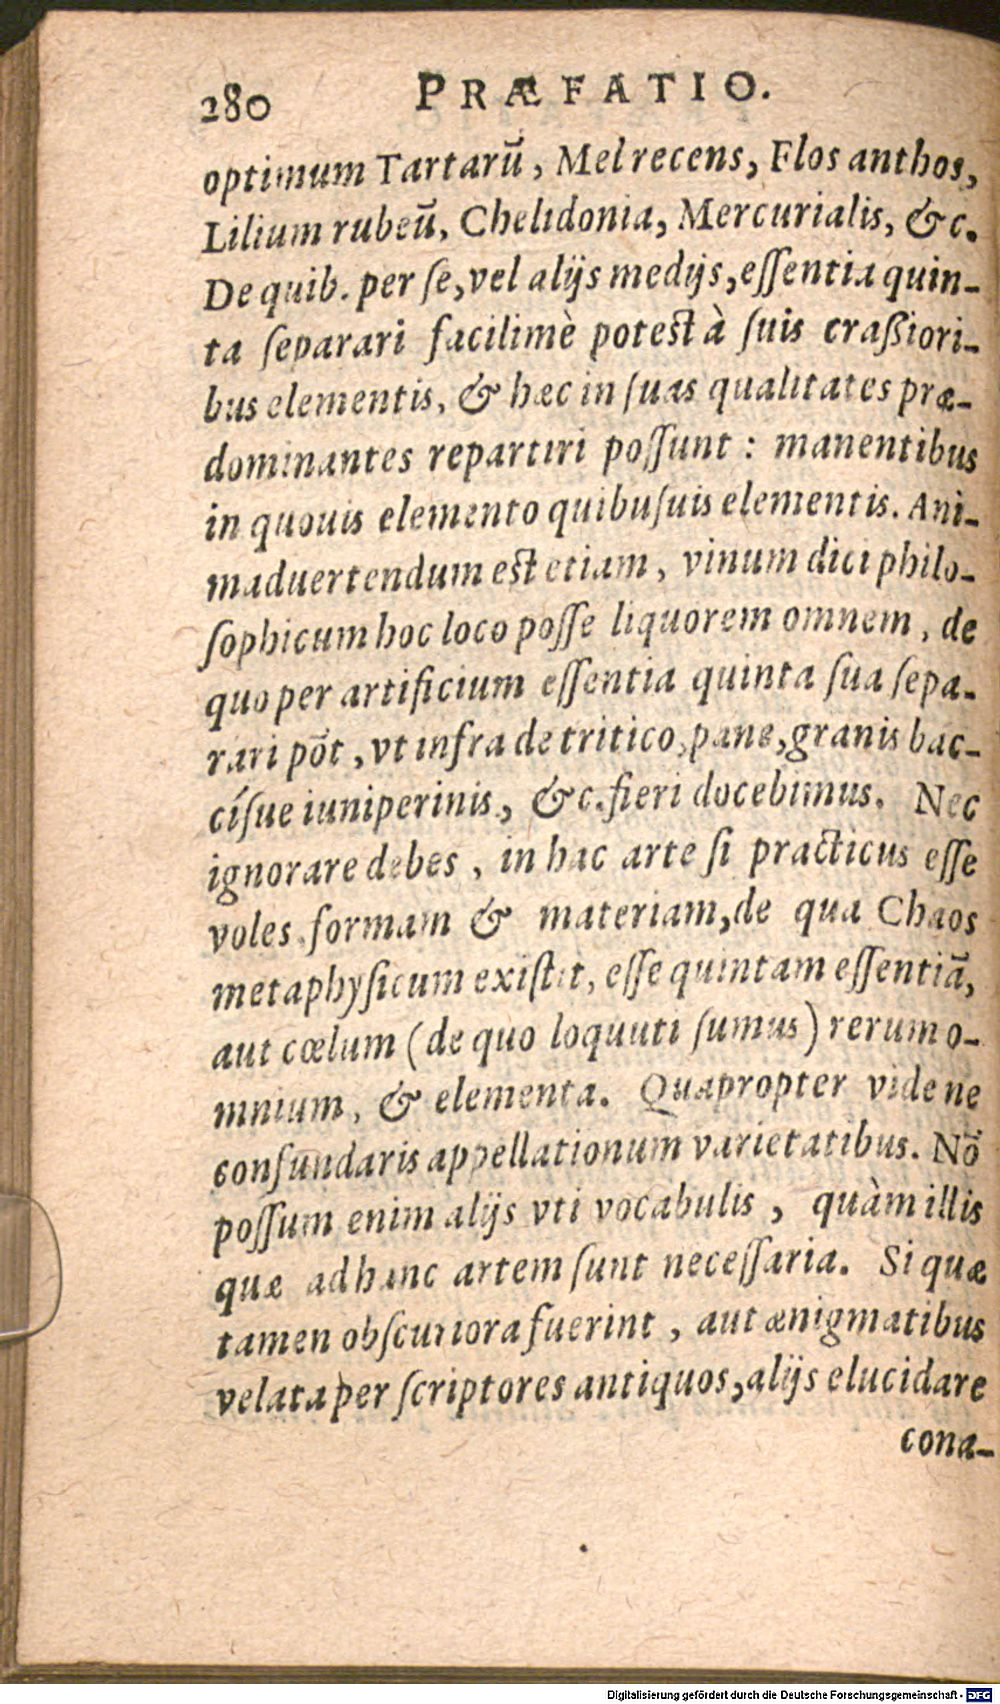 280 PRÆFATIO.
optimum Tartarū, Mel recens, Flos anthos,
Lilium rubeū, Chelidonia, Mercurialis, &c.
De quib. per ſe, vel alijs medijs, eſſentia quin-
ta ſeparari facilimè potest à ſuis craßiori-
bus elementis, & hæc in ſuas qualitates præ-
dominantes repartiri poſſunt : manentibus
in quouis elemento quibuſuis elementis. Ani-
maduertendum est etiam, vinum dici philo-
ſophicum hoc loco poſſe liquorem omnem, de
quo per artificium eſſentia quinta ſua ſepa-
rari pōt, vt infra de tritico, pane, granis bac-
cíſue iuniperinis, &c. fieri docebimus. Nec
ignorare debes, in hac arte ſi practicus eſſe
voles formam & materiam, de qua Chaos
metaphyſicum exiſtit, eſſe quintam eſſentiā,
aut cœlum (de quo loquuti ſumus) rerum o-
mnium, & elementa. Quapropter vide ne
confundaris appellationum varietatibus. Nō
poſſum enim alijs vti vocabulis, quàm illis
quæ ad hanc artem ſunt neceſſaria. Si quæ
tamen obſcuriora fuerint, aut ænigmatibus
velata per ſcriptores antiquos, alijs elucidare
cona-
Digitalisierung gefördert durch die Deutsche Forschungsgemeinschaft - DFG